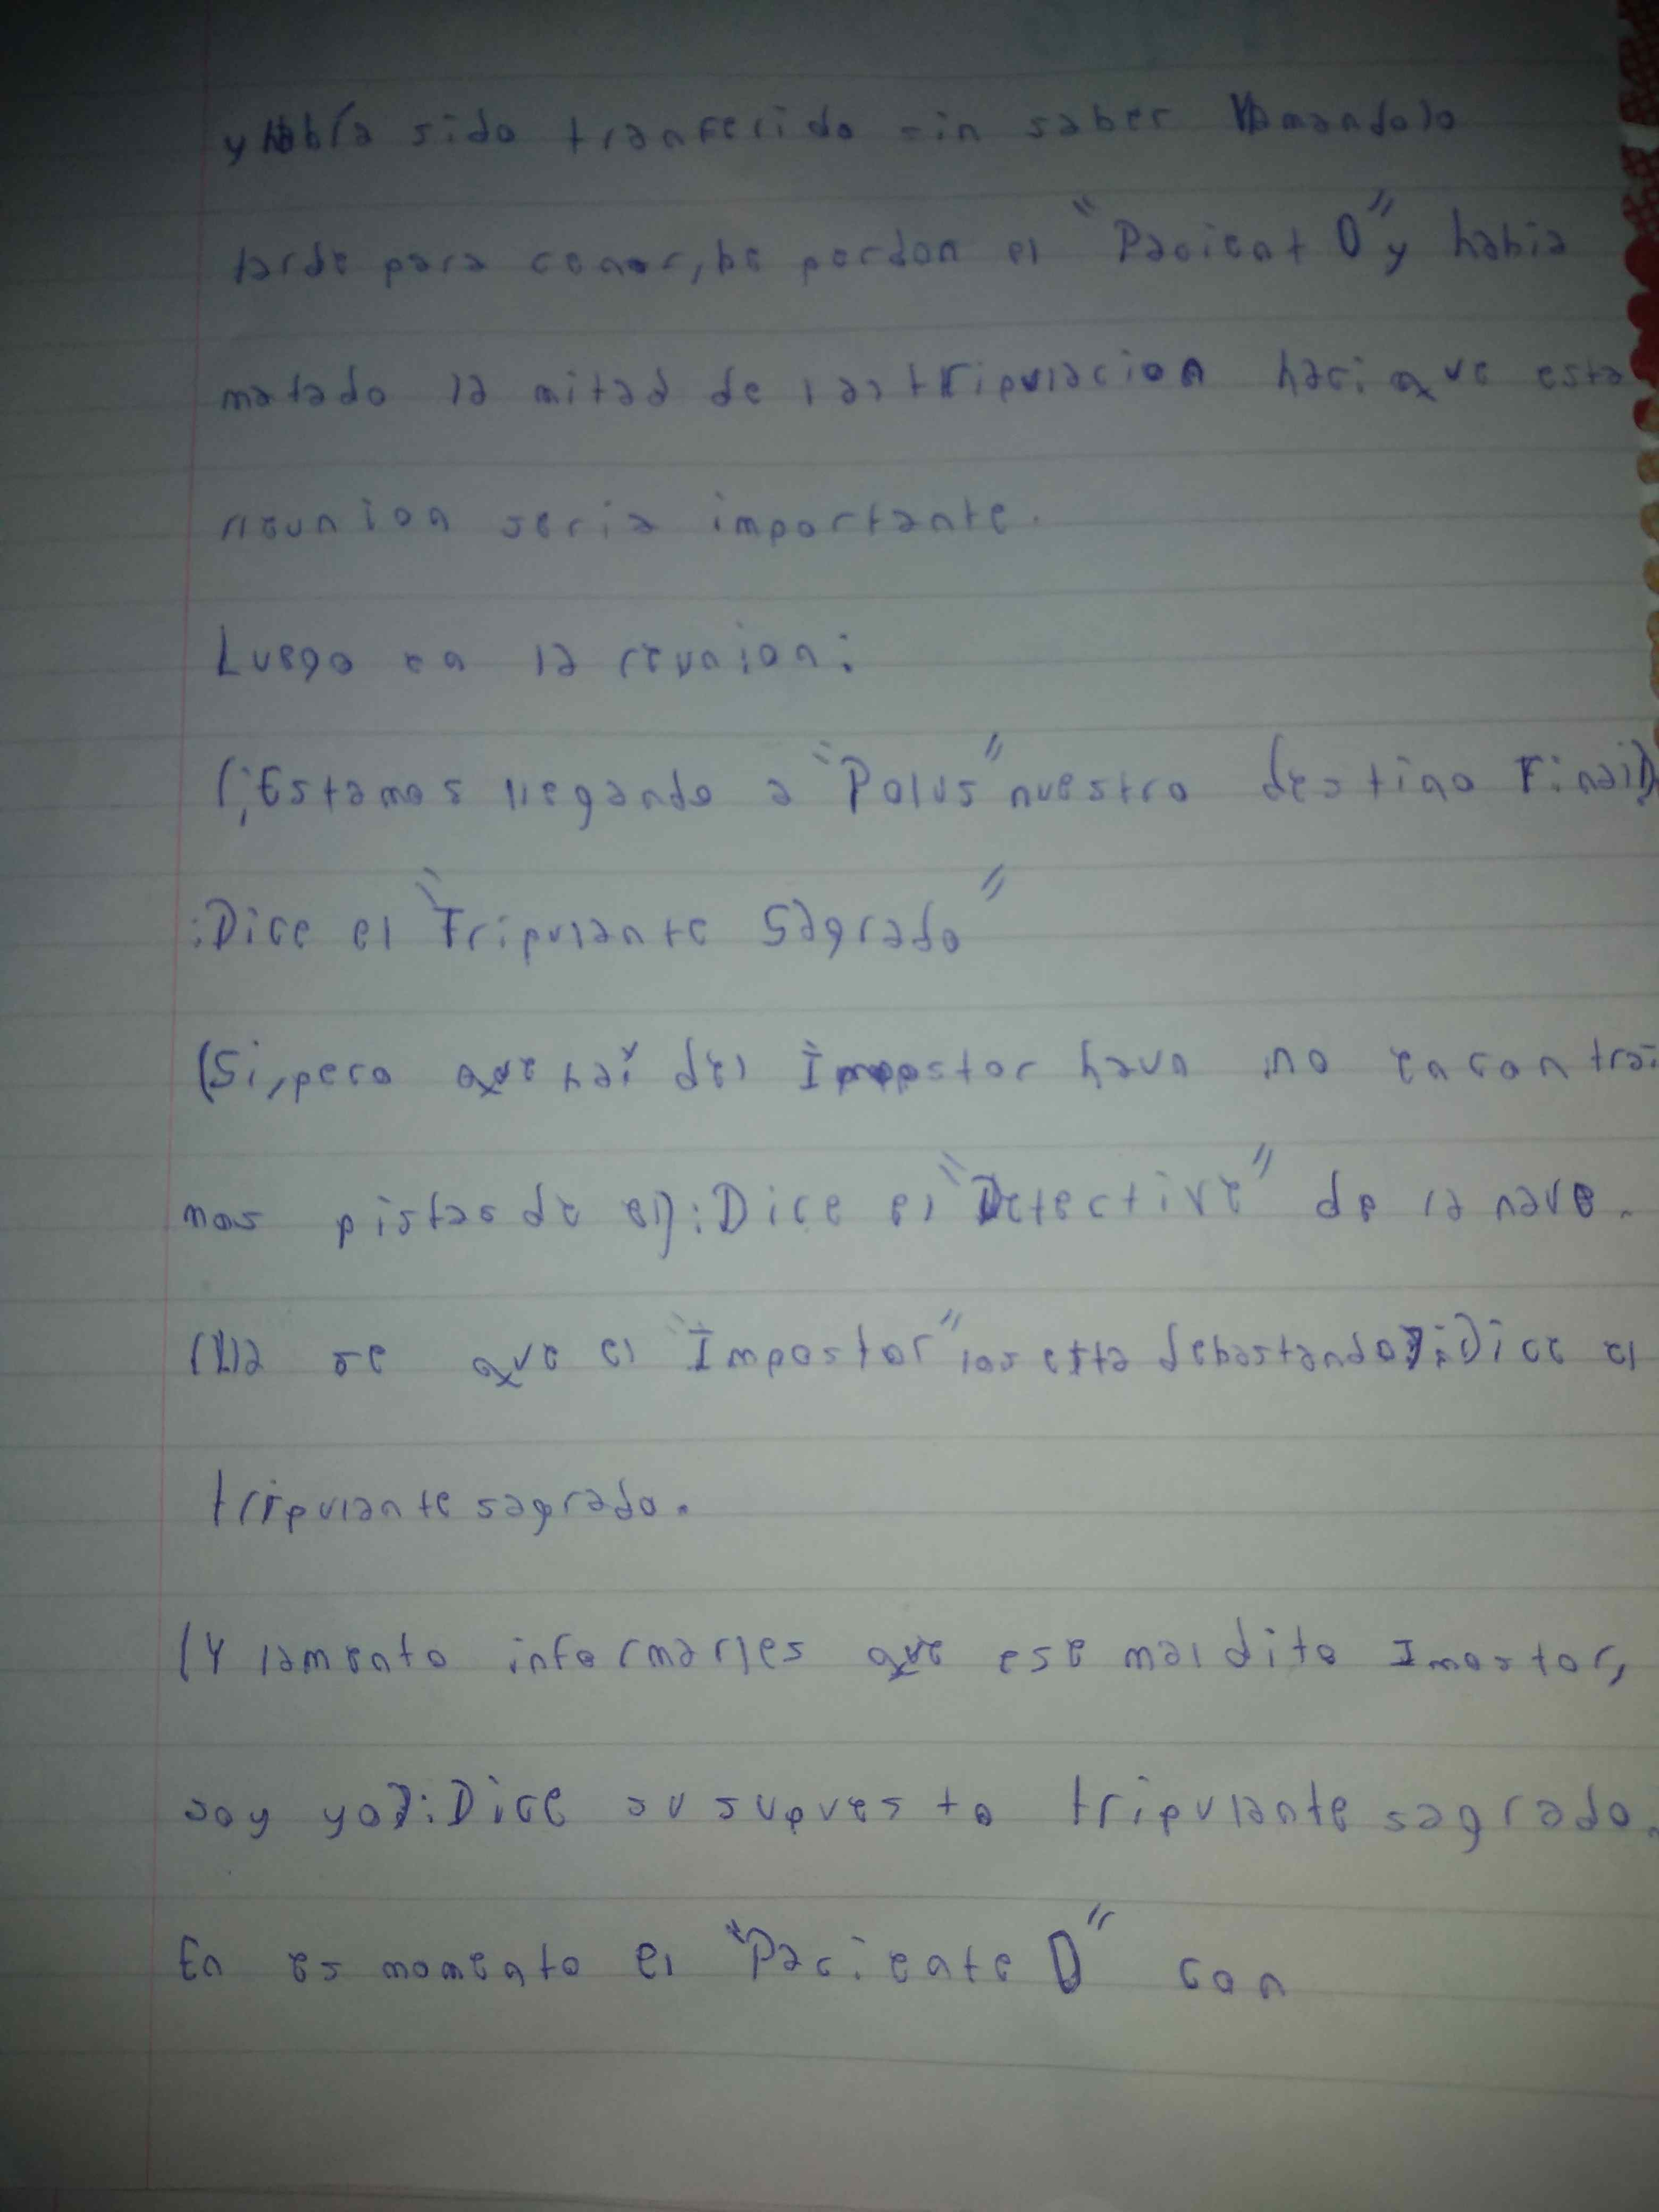 y había sido tranferido sin saber mandolo
tarde para cenar, he perdon el "Pacient 0" y habia
matado la mitad de las tripulacion haci que esta
reunion seria importante.
Luego en la reunion:
(¡Estamos llegando a "Polus" nuestro destino Final)
:Dice el "Tripulante Sagrado"
(Si, pero que hai del Impostor haun no encontra-
mos pistas de el):Dice el "Detective" de la nave.
(Ya se que el "Impostor" los esta debastando):Dice el
tripulante sagrado.
(Y lamento informarles que ese maldito Imostor,
soy yo):Dice su supuesto tripulante sagrado.
En es momento el "Paciente 0" con